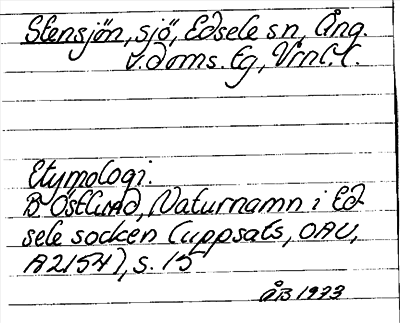 Stensjön, sjö, Edsele sn, Ång.
v. doms. tg, Vrnl. l.
Etymologi.
B Östlund, Naturnamn i Ed-
sele socken (uppsats, OAU,
A2154), s. 15
ÅB 1973